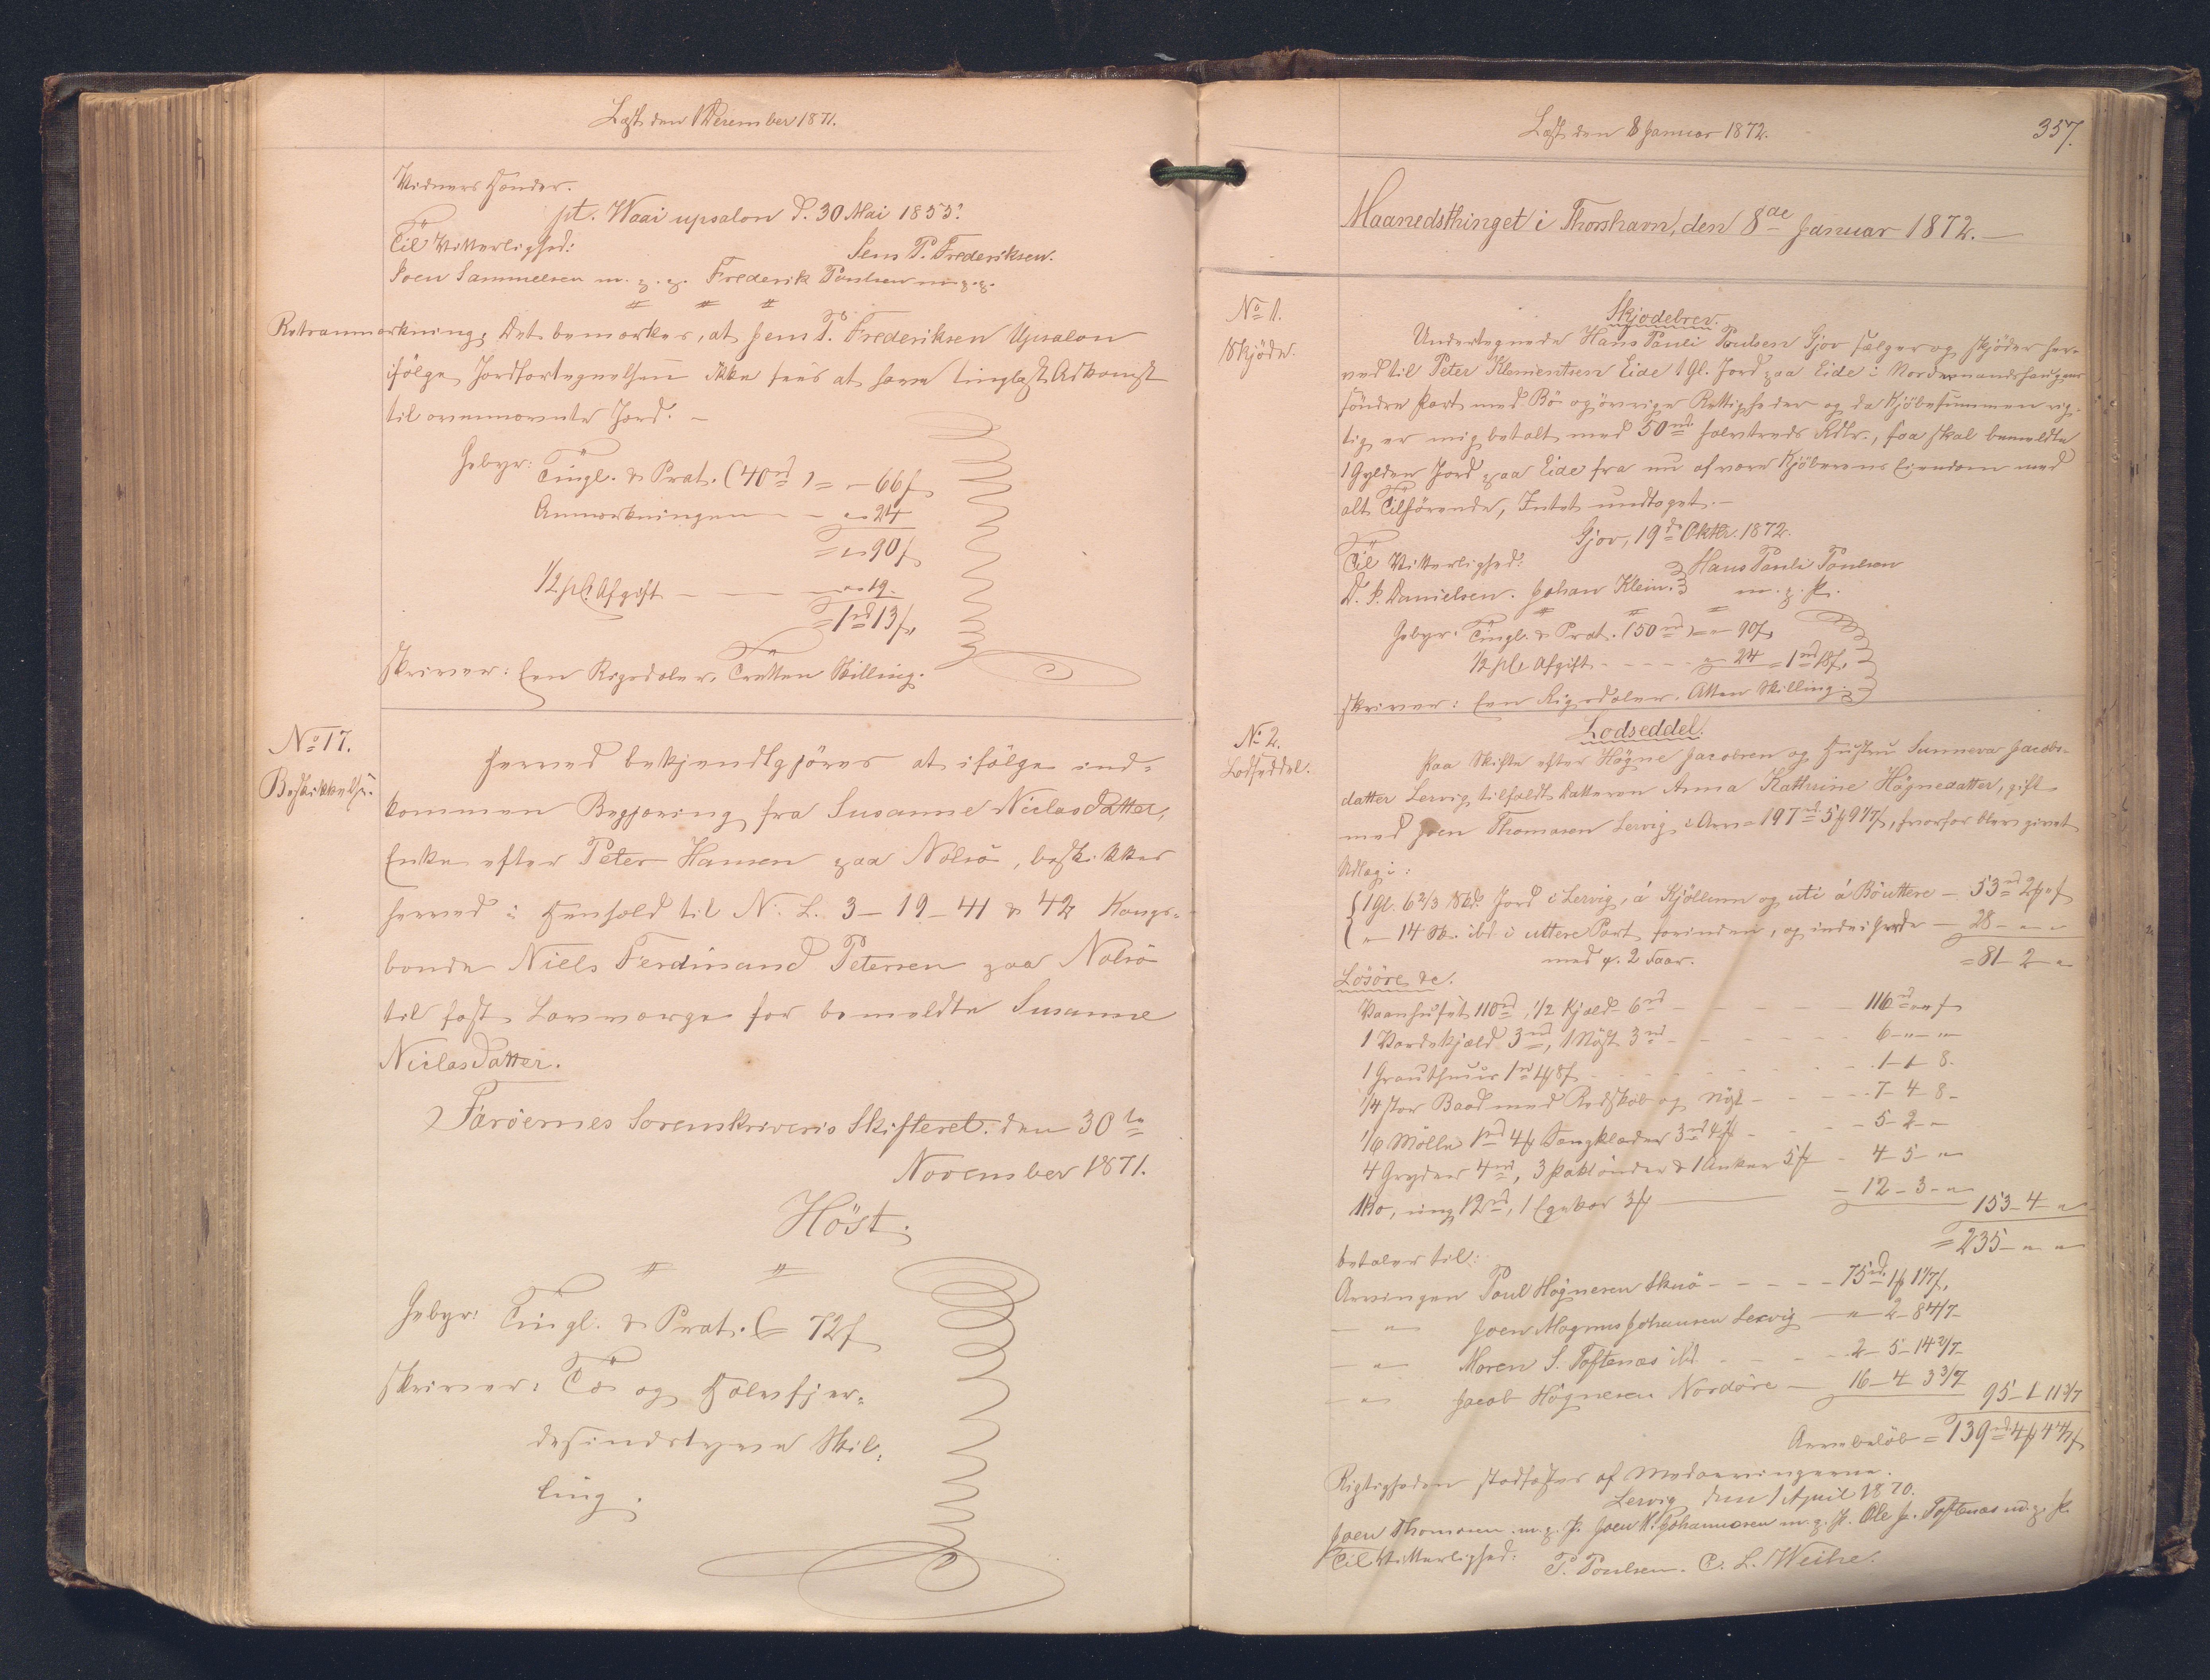 Læst den 1 December 1871.
Vidners Hænder.
pt. Waai upsalon d. 30 Mai 1853.
Til Vitterlighed: Jens P. Frederiksen.
Joen Sammuelsen m. p. p. Frederik Poulsen m. p. p.
Retsanmærkning: Det bemærkes, at Jens P. Frederiksen Upsalon
ifölge Jordfortegnelsen ikke sees at have tinglæst Adkomst
til ovennævnte Jord. —
Gebyr: Tingl. & Prot. (40 rd) = " - 66 s
Anmærkningen — " - 24
= " - 90 s
1/2 pCt Afgift — " - 19.
= 1 rd 13 s
skriver: Een Rigsdaler, Tretten Skilling.
No 17.
Beskikkelse.
Herved bekjendtgjöres at ifölge ind-
kommen Begjæring fra Susanne Niclasdatter,
Enke efter Peter Hansen paa Nolsö, beskikkes
herved i Henhold til N. L. 3-19-41 & 42 Kongs-
bonde Niels Ferdinand Petersen paa Nolsö
til fast Lavværge for bemeldte Susanne
Niclasdatter.
Færöernes Sorenskriveris Skifteret. den 30te
November 1871.
Höst.
Gebyr: Tingl. & Prot. = 72 s
skriver: To og Halvfjer-
desindstyve Skil-
ling.
Læst den 8 Januar 1872.
357.
Maanedsthinget i Thorshavn, den 8de Januar 1872. —
No 1.
Skjöde.
Skjodebrev.
Undertegnede Hans Pauli Poulsen Gjov sælger og skjöder her-
ved til Peter Klementsen Eide 1 Gl. Jord paa Eide i Nordmandshaugens
söndre Part med Bö og övrige Rettigheder og da Kjöbesummen rig-
tig er mig betalt med 50 rd. halvtreds Rdlr., saa skal bemeldte
1 Gylden Jord paa Eide fra nu af være Kjöberens Eiendom med
alt Tilhörende, Intet undtaget. —
Gjov, 19de Oktbr. 1872.
Til Vitterlighed: Hans Pauli Poulsen
D. P. Danielsen. Johan Klein. m. p. P.
Gebyr: Tingl. & Prot. (50 rd) = " - 90 s
1/2 pCt Afgift - - - - " - 24 = 1 rd 18 s.
skriver: Een Rigsdaler, Atten Skilling.
No 2.
Lodseddel.
Lodseddel.
Paa Skifte efter Högne Jacobsen og Hustru Sunneva Jacobs-
datter Lervig tilfaldt Datteren Anna Kathrine Högnedatter, gift
med Joen Thomasen Lervig i Arv 197 rd 5 # 9 1/7 s, hvorfor blev givet
Udlæg i:
1 Gl. 6 2/3 Skd. Jord i Lervig, á Kjöllum og uti á Böuttere — 53 rd 2 # " s
" 14 Sk. ibd i uttere Part forinden, og inde i Gerde — 28 - " - "
med p. 2 Faar. = 81 - 2 - "
Lösöre &c.
Vaanhuset 110 rd, 1/2 Kjæld 6 rd — 116 rd " " s
1 Vordskjæld 3 rd, 1 Nöst 3 rd — 6 - " - "
1 Grauthuus 1 rd 1 # 8 s — 1 - 1 - 8 -
1/4 stor Baad med Redskab og Nöst — 7 - 4 - 8 -
1/6 Mölle 1 rd 4 # Sengklæder 3 rd 4 # — 5 - 2 - "
4 Gryder 4 rd, 3 Paktönder & 1 Anker 5 # — 4 - 5 - "
1 Ko, ung 12 rd, 1 Egekar 3 # — 12 - 3 - " 153 - 4 - "
= 235 - " - "
betaler til:
Arvingen Poul Högnesen Skuö — 75 rd 1 # 1 1/7 s,
— " — Joen Magnus Johansen Lervig — " 2 - 8 4/7 -
— " — Maren S. Toftenæs ibd — 2 - 5 - 14 2/7 -
— " — Jacob Högnesen Nordöre — 16 - 4 3 3/7 95 - 1 - 11 3/7
Arvebelöb = 139 rd 4 # 4 4/7 s
Rigtigheden stadfæstes af Medarvingerne.
Lervig den 1 April 1870.
Joen Thomasen m. p. P. Joen M. Johannesen m. p. P. Ole J. Toftenæs m. p. P.
Til Vitterlighed: P. Poulsen. C. L. Weihe.